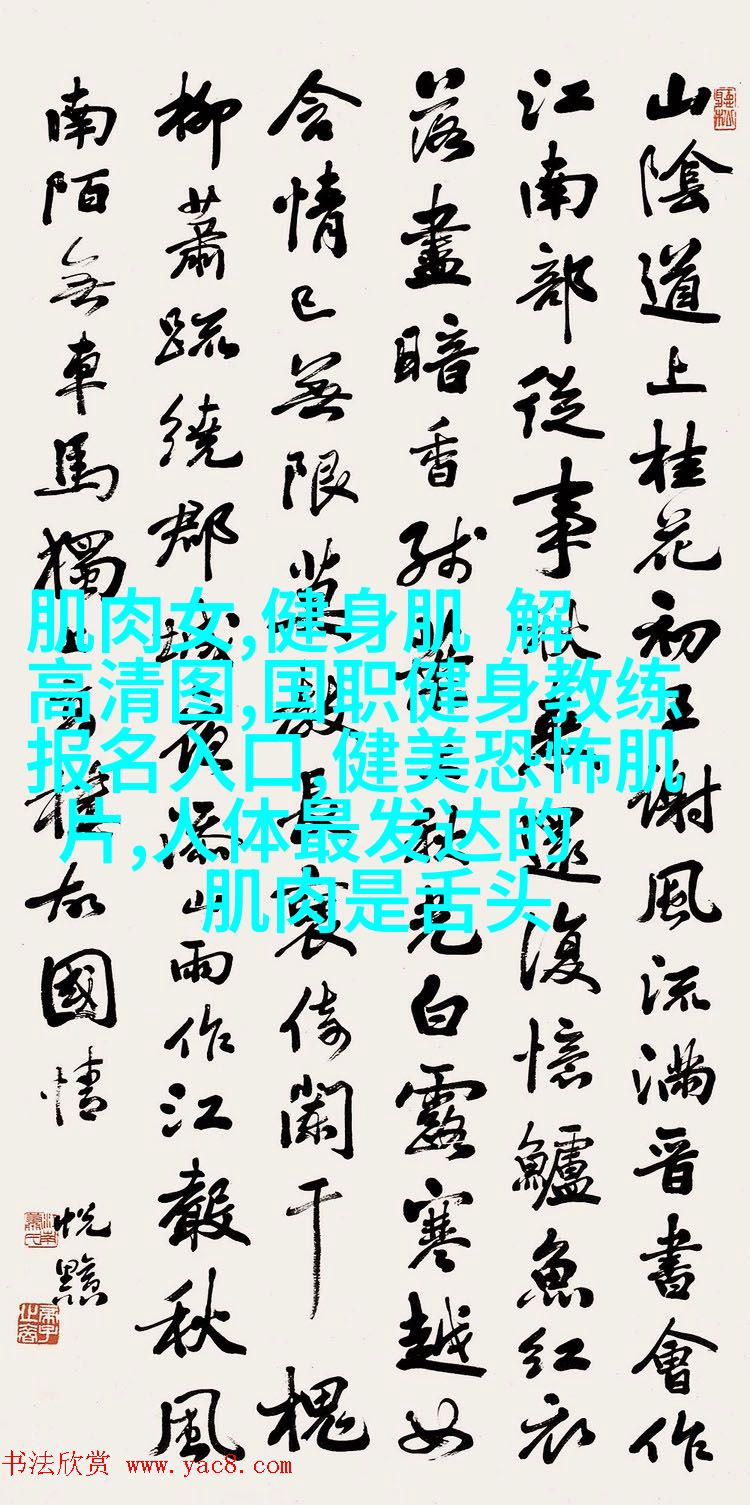 山陰道上桂花初王謝風流滿晉書會作
江南部從事秋來還復憶鱸魚紅衣
落盡暗香殘葉上秋光白露寒越女
含情已無限莫教長袖倚闌干槐
柳蕭疏繞郡城夜添山雨作江聲秋風
南陌無車馬獨上高樓故國情
悅黟
肌肉女,健身肌 解
高清图,国职健身教练
报名入口,健美恐怖肌
片,人体最发达的
肌肉是舌头
书法欣赏 www.yac8.com